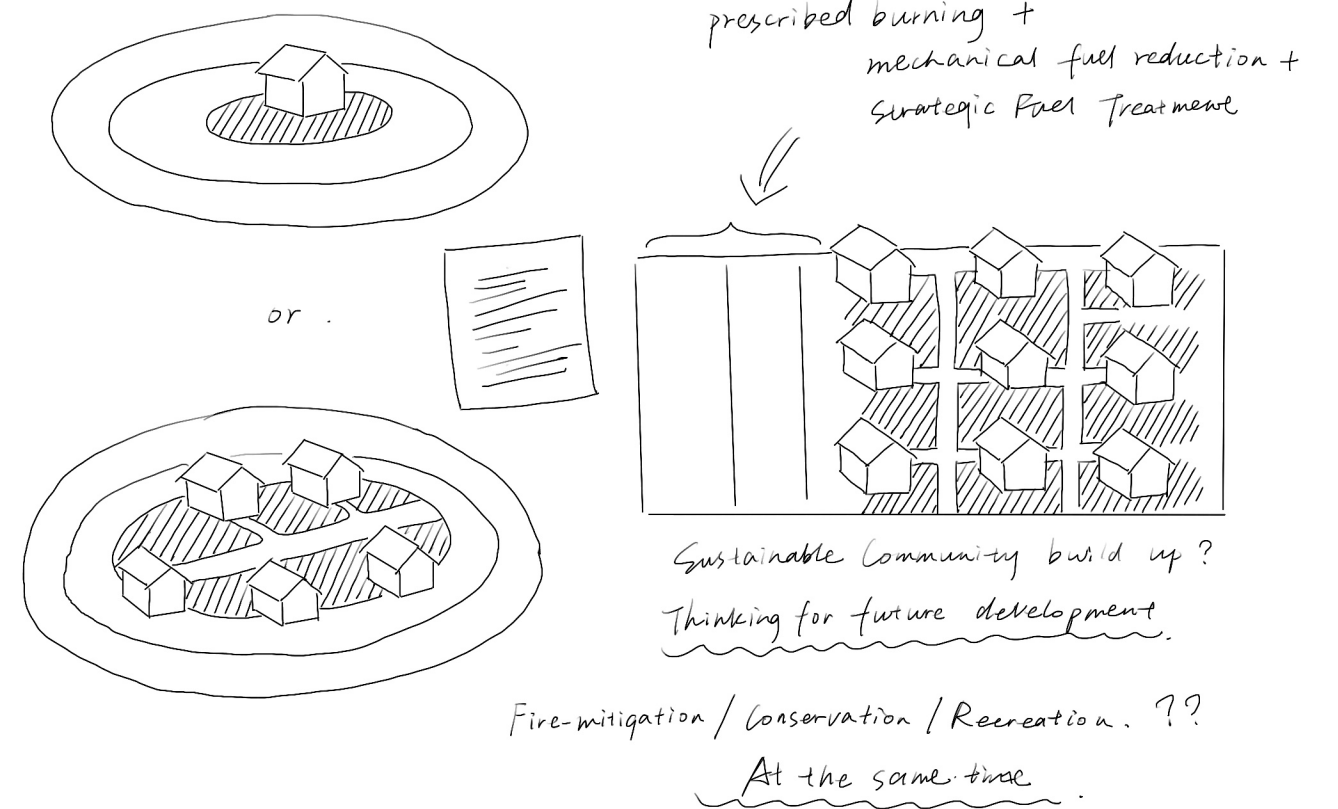 prescribed burning +
mechanical fuel reduction +
Strategic Fuel Treatment
or .
Sustainable Community build up?
Thinking for future development.
Fire-mitigation / Conservation / Recreation. ??
At the same time.